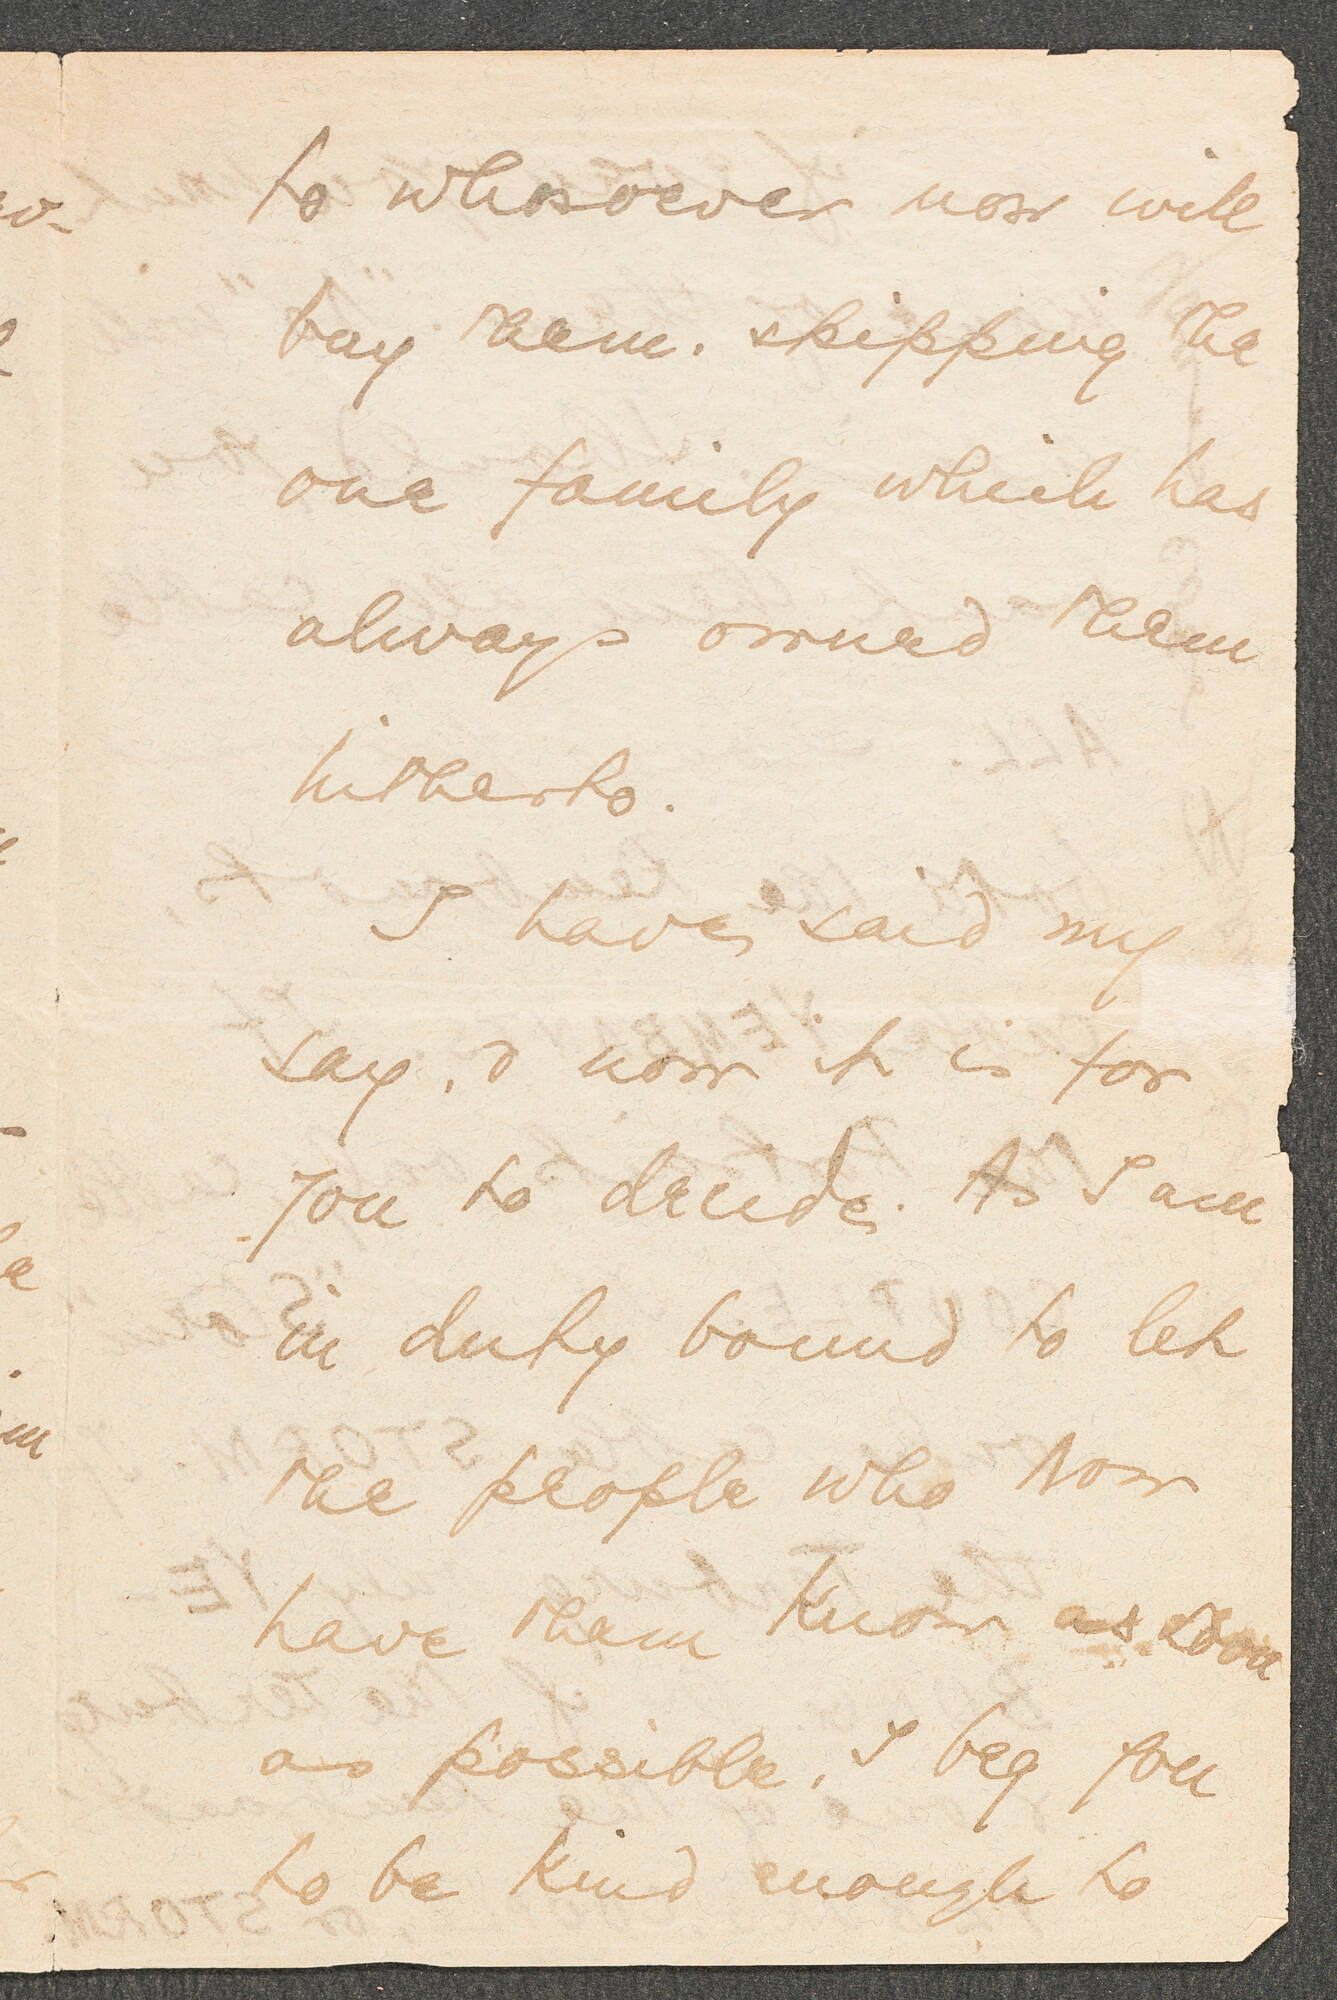 to whosoever now will
buy them. skipping the
one family which has
always owned them
hitherto.
I have said my
say, & now it is for
you to decide. As I am
in duty bound to let
the people who now
have them know as soon
as possible, I beg you
to be kind enough to